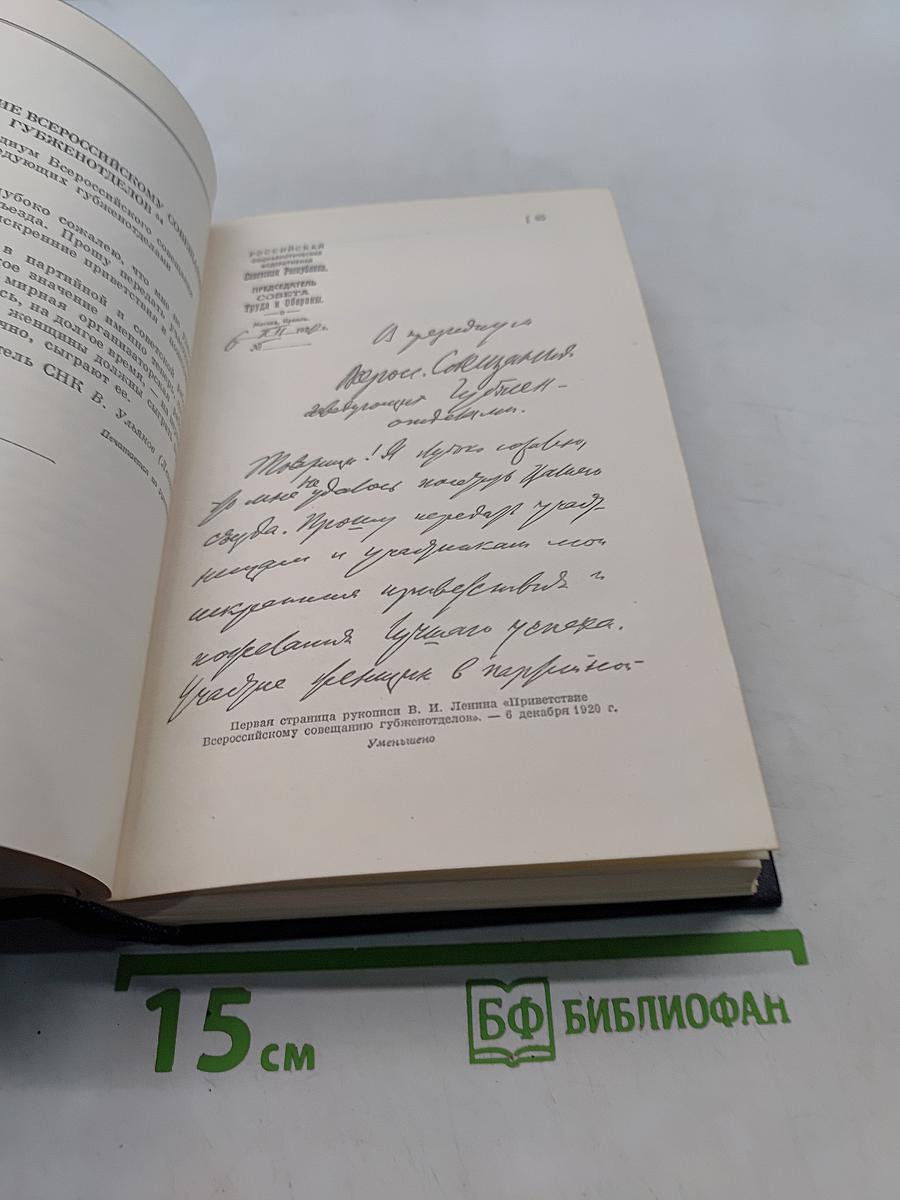 ИЕ ВСЕРОССИЙСКОМУ СОВЕЩАНИЮ
ГУБЖЕНОТДЕЛОВ 54
диум Всероссийского совещания
едующих губженотделами
лубоко сожалею, что мне не
ъезда. Прошу передать
искренние приветствия и
в партийной и советской
ое значение именно теперь,
мирная организаторская
сь, на долгое время, на
женщины должны сыграть
чно, сыграют ее.
тель СНК В. Ульянов
Печатается по
65
РОССИЙСКАЯ
СОЦИАЛИСТИЧЕСКАЯ
ФЕДЕРАТИВНАЯ
Советская Республика.
ПРЕДСЕДАТЕЛЬ
СОВЕТА
Труда и Обороны.
Москва, Кремль.
6 XII 1920 г.
№
В президиум
Всеросс. Совещания
заведующих Губжен-
отделами.
Товарищи! Я глубоко сожалею,
что мне не удалось посетить Вашего
съезда. Прошу передать участ-
ницам и участникам мои
искренния приветствия и
пожелания лучшаго успеха.
Участие женщин в партийной
Первая страница рукописи В. И. Ленина «Приветствие
Всероссийскому совещанию губженотделов». — 6 декабря 1920 г.
Уменьшено
15 см
БФ БИБЛИОФАН